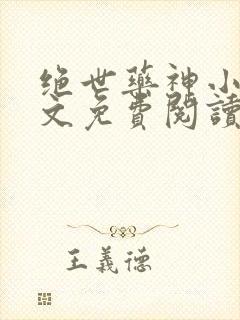 绝世藥神小
文免費閱讀
王義德